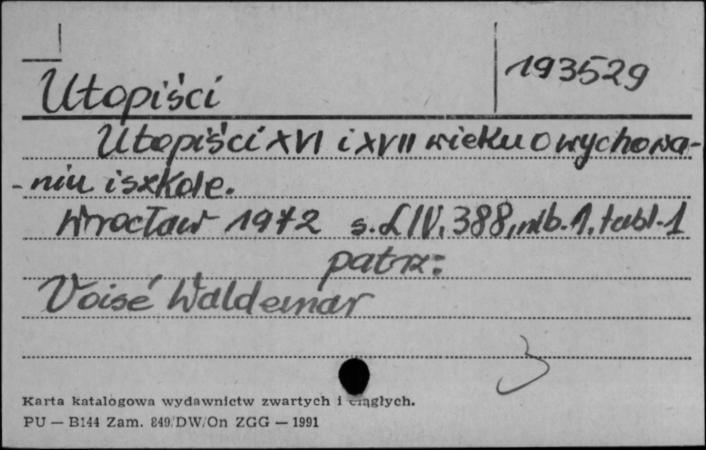 193529
Utopiści
Utopiści XVI i XVII wieku o wychowa-
-niu i szkole.
Wrocław 1972 s. LIV, 388, nlb. 1, tabl. 1
patrz:
Voisé Waldemar
3
Karta katalogowa wydawnictw zwartych i ciągłych.
PU — B144 Zam. 849/DW/On ZGG — 1991